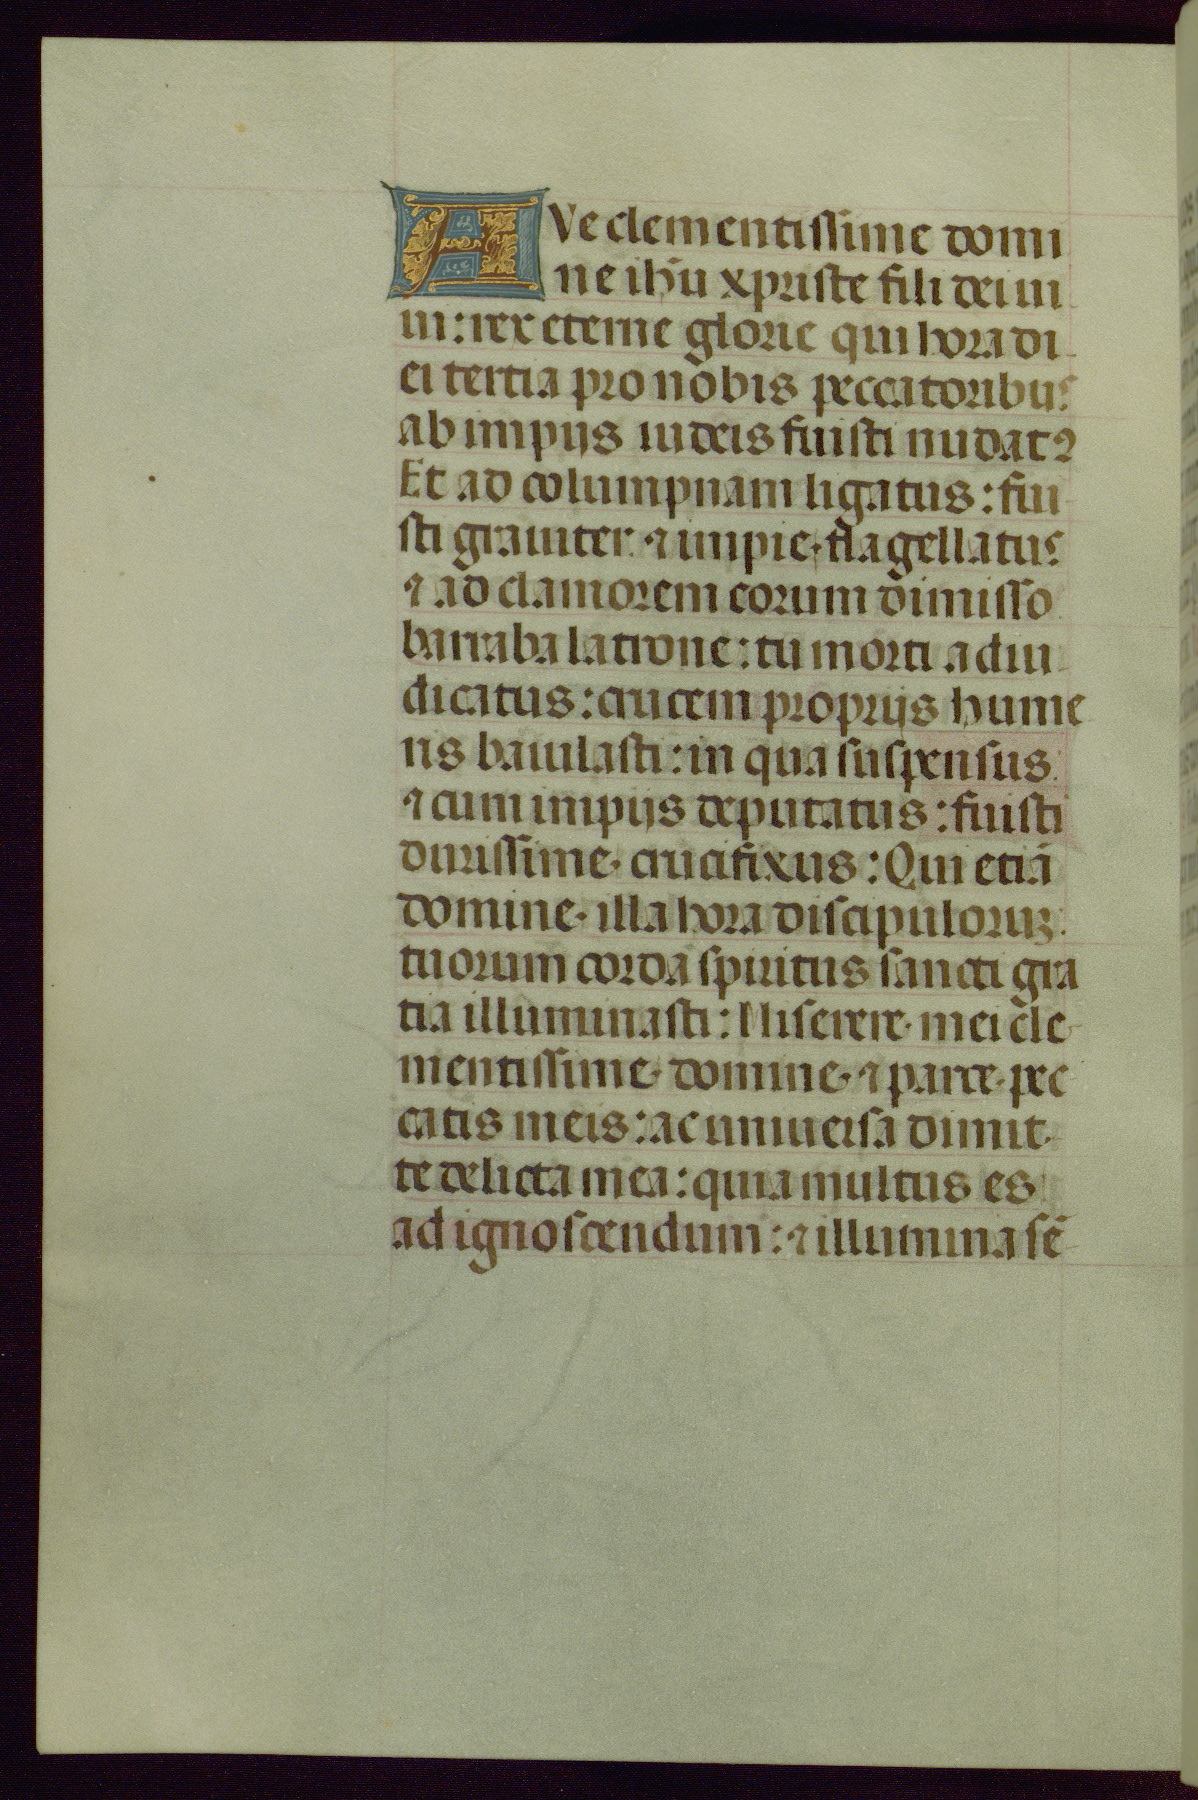 AVe clementissime domi
ne ihu̅ xpriste fili dei ui
ui: rex eterne glorie qui hora di
ei tertia pro nobis peccatoribus
ab impijs iudeis fuisti nudatꝰ
Et ad columpnam ligatus: fui
sti grauiter ⁊ impie· flagellatus
⁊ ad clamorem eorum dimisso
barraba latrone: tu morti adiu
dicatus: crucem proprijs hume
ris baiulasti: in qua suspensus.
⁊ cum impijs deputatus: fuisti
durissime· crucifixus: Qui etiā
domine· illa hora discipuloruꝫ
tuorum corda spiritus sancti gra
tia illuminasti: Miserere· mei cle
mentissime· domine· ⁊ parce· pec
catis meis: ac uniuersa dimit
te delicta mea: quia multus es
ad ignoscendum: ⁊ illumina sē